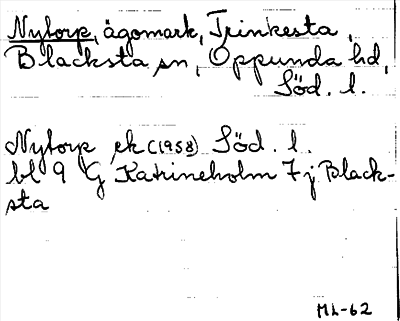 Nytorp, ägomark, Trinkesta,
Blacksta sn, Oppunda hd,
Söd. l.
Nytorp ek (1958) Söd. l.
bl 9 G Katrineholm 7j Black-
sta
ML-62